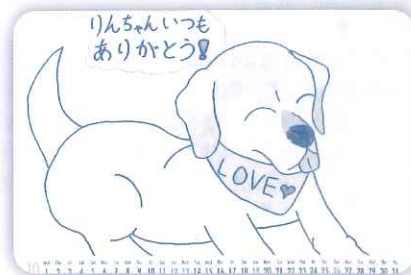 りんちゃんいつも
ありがとう!
LOVE♥
10
1 2 3 4 5 6 7 8 9 10 11 12 13 14 15 16 17 18 19 20 21 22 23 24 25 26 27 28 29 30 31